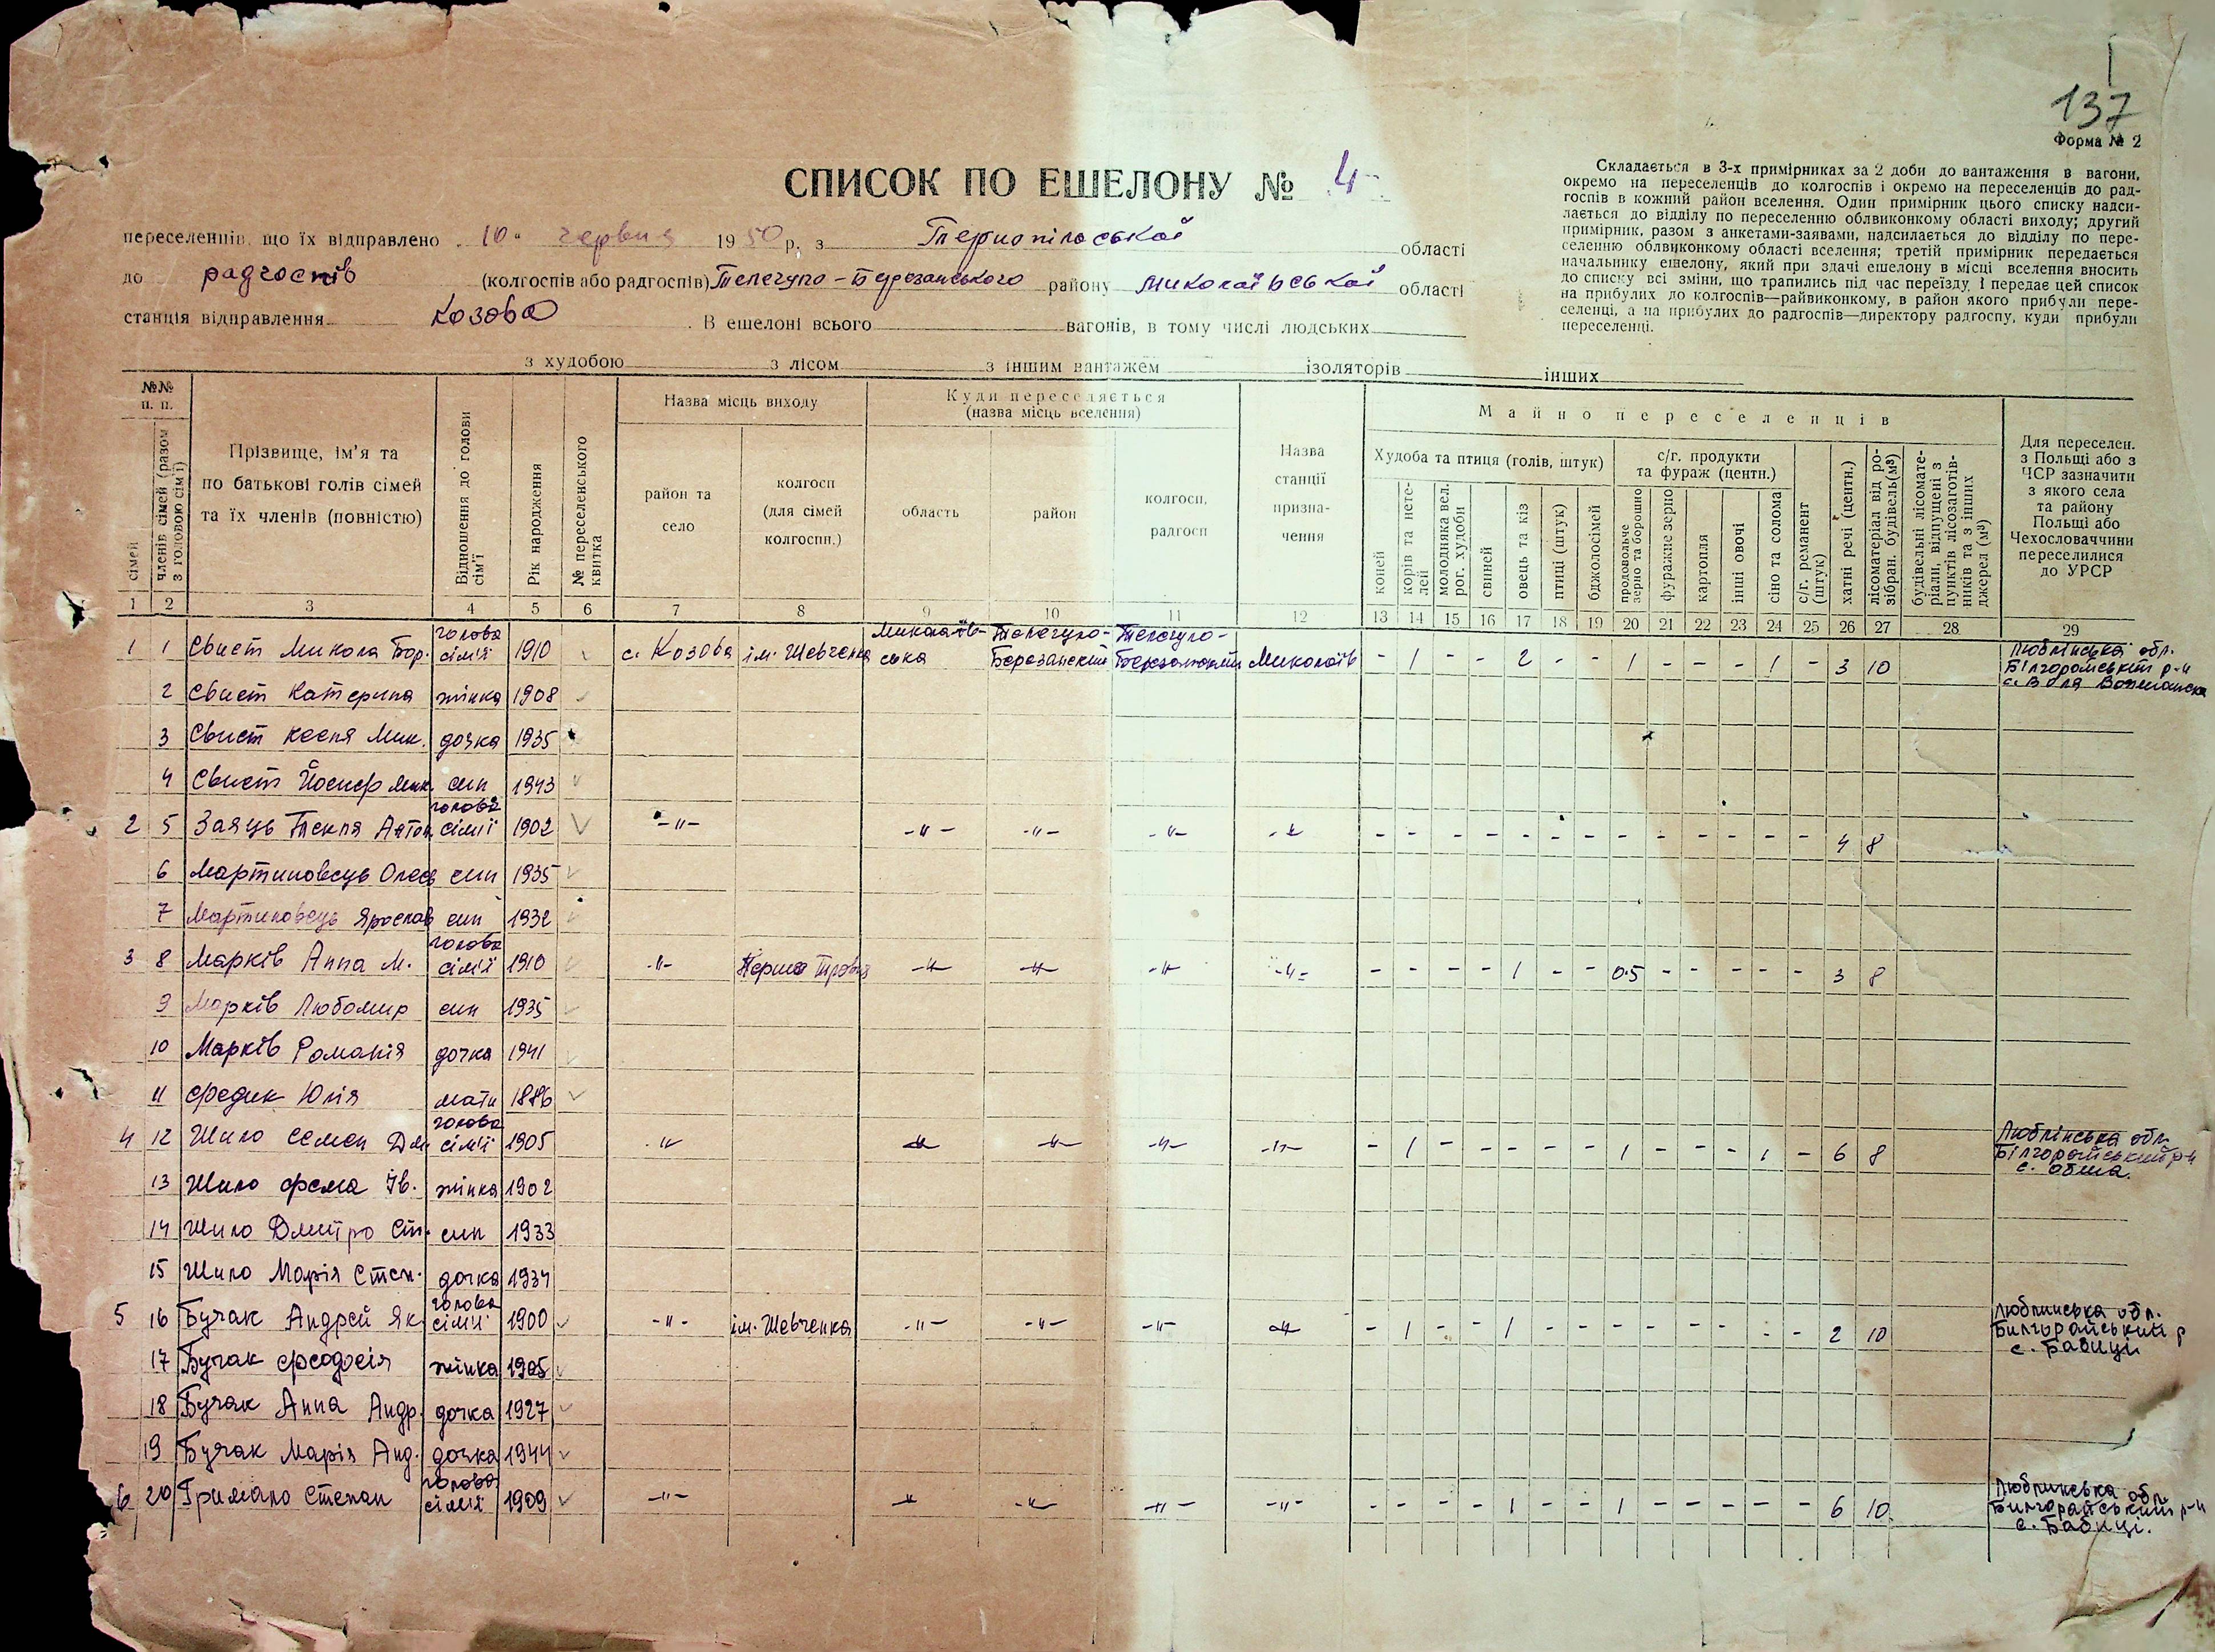 137
Форма № 2
СПИСОК ПО ЕШЕЛОНУ № 4
переселенців, що їх відправлено „10“ червня 1950 р. з Тернопільської області
до радгоспів (колгоспів або радгоспів) Телегуло-Березанського району Миколаївської області
станція відправлення Козова. В ешелоні всього вагонів, в тому числі людських
з худобою з лісом з іншим вантажем ізоляторів інших
Складається в 3-х примірниках за 2 доби до вантаження в вагони,
окремо на переселенців до колгоспів і окремо на переселенців до рад-
госпів в кожний район вселення. Один примірник цього списку надси-
лається до відділу по переселенню облвиконкому області виходу; другий
примірник, разом з анкетами-заявами, надсилається до відділу по пере-
селенню облвиконкому області вселення; третій примірник передається
начальнику ешелону, який при здачі ешелону в місці вселення вносить
до списку всі зміни, що трапились під час переїзду, і передає цей список
на прибулих до колгоспів—райвиконкому, в район якого прибули пере-
селенці, а на прибулих до радгоспів—директору радгоспу, куди прибули
переселенці.
№№ п. п.
сімей
членів сімей (разом з головою сім'ї)
Прізвище, ім'я та
по батькові голів сімей
та їх членів (повністю)
Відношення до голови сім'ї
Рік народження
№ переселенського квитка
Назва місць виходу
район та село
колгосп
(для сімей
колгоспн.)
Куди переселяється
(назва місць вселення)
область
район
колгосп,
радгосп
Назва
станції
призна-
чення
Майно переселенців
Худоба та птиця (голів, штук)
коней
корів та нете-
лей
молодняка вел.
рог. худоби
свиней
овець та кіз
птиці (штук)
бджолосімей
с/г. продукти
та фураж (центн.)
продовольче
зерно та борошно
фуражне зерно
картопля
інші овочі
сіно та солома
с/г. реманент
(штук)
хатні речі (центн.)
лісоматеріал від ро-
зібран. будівель(м³)
будівельні лісомате-
ріали, відпущені з
пунктів лісозаготів-
ників та з інших
джерел (м³)
Для переселен.
з Польщі або з
ЧСР зазначити
з якого села
та району
Польщі або
Чехословаччини
переселилися
до УРСР
1 2 3 4 5 6 7 8 9 10 11 12 13 14 15 16 17 18 19 20 21 22 23 24 25 26 27 28 29
1 1 Свист Микола Гор. голова сім'ї 1910 с. Козова ім. Шевченка Миколаїв-ська Телегуло-Березанский Телегуло-Березанский Миколаїв - 1 - - 2 - - 1 - - - 1 - 3 10 Люблінська обл. Білгорайський р-н с. Воля
2 Свист Катерина жінка 1908
3 Свист Ксеня Мик. дочка 1935
4 Свист Йосиф Мик. син 1943
2 5 Заяць Текля Антон голова сім'ї 1902 -"- -"- -"- -"- -"- - - - - - - - - - - - - - 4 8
6 Мартиновець Олекс син 1935
7 Мартиновець Ярослав син 1932
3 8 Марків Анна М. голова сім'ї 1910 -"- Перше Травня -"- -"- -"- -"- - - - - 1 - - 0.5 - - - - - 3 8
9 Марків Любомир син 1935
10 Марків Романія дочка 1941
11 Федик Юлія мати 1886
4 12 Шило Семен Дм. голова сім'ї 1905 -"- -"- -"- -"- -"- - 1 - - - - - 1 - - - 1 - 6 8 Люблінська обл. Білгорайський р-н с. Обша.
13 Шило Фема Ів. жінка 1902
14 Шило Дмитро Ст. син 1933
15 Шило Марія Стен. дочка 1934
5 16 Бучак Андрей Як голова сім'ї 1900 -"- ім. Шевченка -"- -"- -"- -"- - 1 - - 1 - - - - - - - - 2 10 Люблинська обл. Билгорайський р с. Бабици
17 Бучак Феодосія жінка 1905
18 Бучак Анна Андр. дочка 1927
19 Бучак Марія Анд. дочка 1944
6 20 Гримало Степан голова сім'ї 1909 -"- -"- -"- -"- -"- - - - - 1 - - 1 - - - - - 6 10 Люблинська обл. Билгорайський р-н с. Бабиці.